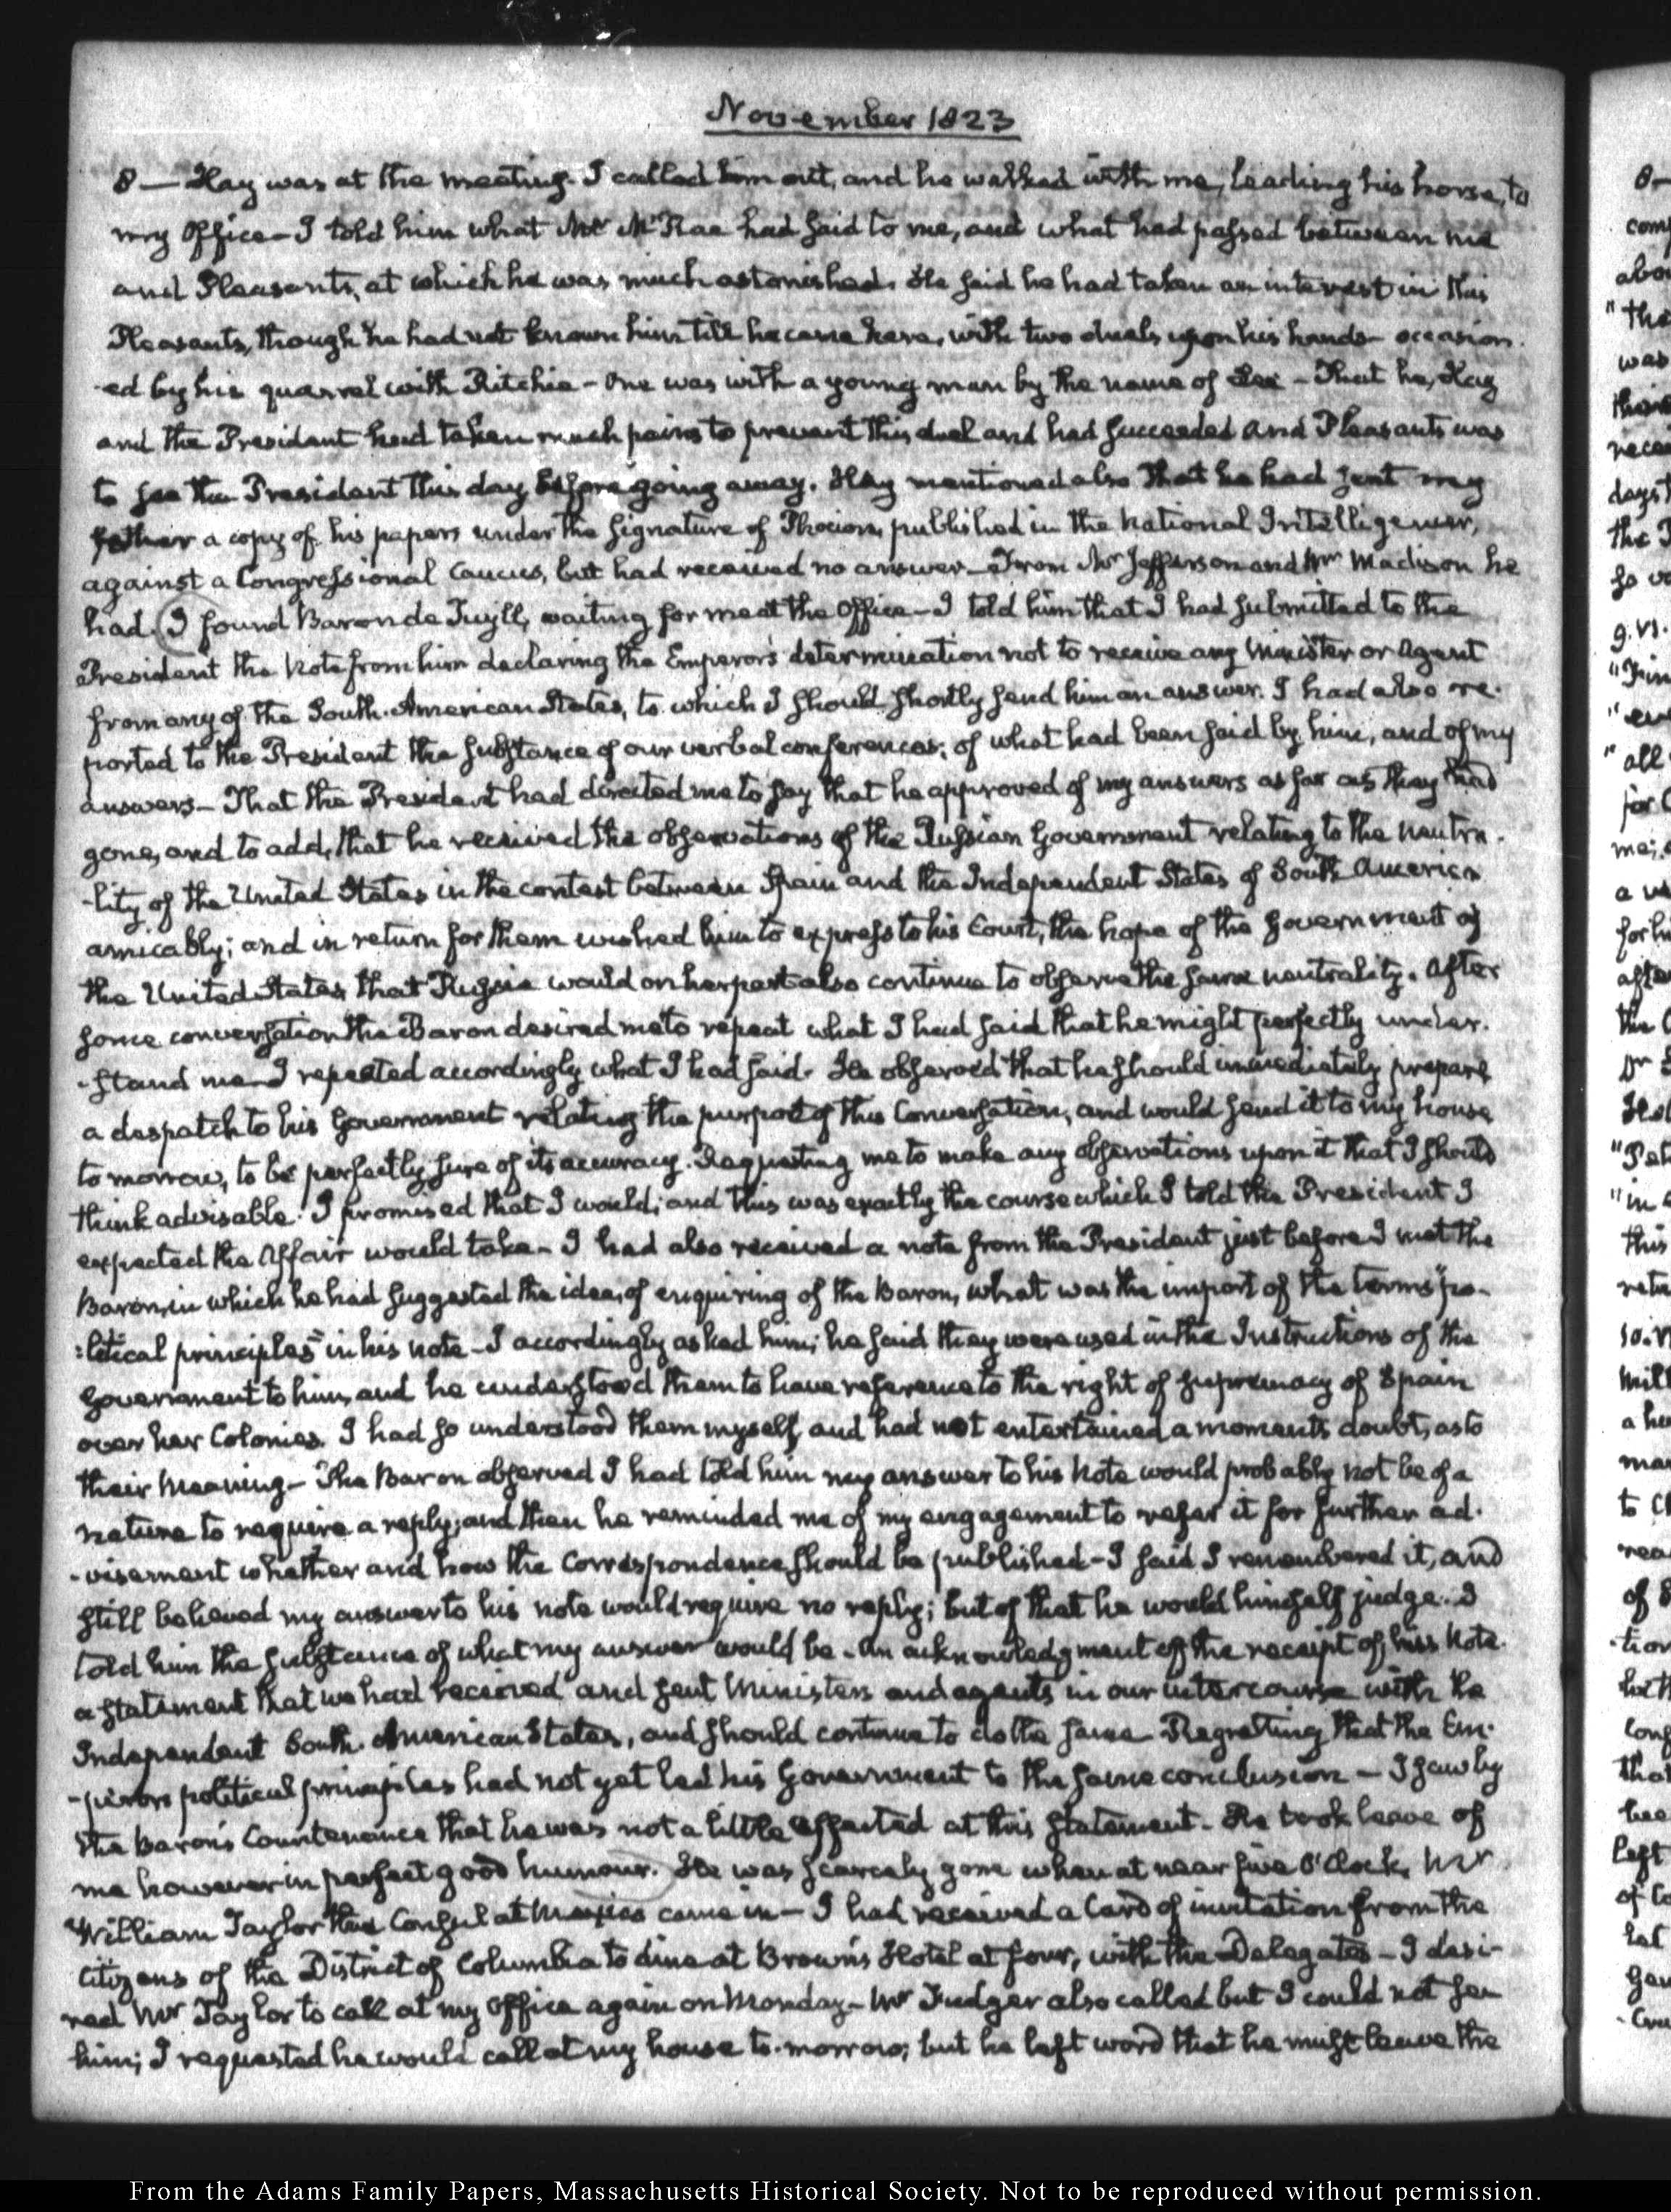 November 1823
8 — Hay was at the meeting. I called him out, and he walked with me, leading his horse, to
my Office — I told him what Mr. McRae had said to me, and what had passed between me
and Pleasants, at which he was much astonished. He said he had taken an interest in this
Pleasants, though he had not known him till he came here, with two duels upon his hands — occasion
-ed by his quarrel with Ritchie — One was with a young man by the name of Lee — That he, Hay
and the President had taken much pains to prevent this duel and had succeeded and Pleasants was
to see the President this day before going away. Hay mentioned also that he had sent my
father a copy of his papers under the signature of Phocion, published in the National Intelligencer,
against a Congressional Caucus, but had received no answer — From Mr Jefferson and Mr Madison he
had. I found Baron de Tuyll, waiting for me at the Office — I told him that I had submitted to the
President the Note from him declaring the Emperor's determination not to receive any Minister or Agent
from any of the South-American States, to which I should shortly send him an answer. I had also re-
ported to the President the substance of our verbal conferences; of what had been said by him, and of my
answers — That the President had directed me to say that he approved of my answers as far as they had
gone, and to add, that he received the observations of the Russian Government relating to the neutra-
-lity of the United States in the contest between Spain and the Independent States of South America
amicably; and in return for them wished him to express to his Court, the hope of the Government of
the United States, that Russia would on her part also continue to observe the same neutrality. After
some conversation the Baron desired me to repeat what I had said that he might perfectly under-
-stand me — I repeated accordingly what I had said. He observed that he should immediately prepare
a despatch to his Government relating the purport of this Conversation, and would send it to my house
to morrow, to be perfectly sure of its accuracy. Requesting me to make any observations upon it that I should
think advisable. I promised that I would; and this was exactly the course which I told the President I
expected the Affair would take — I had also received a note from the President just before I met the
Baron, in which he had suggested the idea, of enquiring of the Baron, what was the import of the terms "po-
:litical principles" in his note — I accordingly asked him; he said they were used in the Instructions of the
Government to him, and he understood them to have reference to the right of supremacy of Spain
over her Colonies. I had so understood them myself, and had not entertained a moments doubt, as to
their meaning — The Baron observed I had told him my answer to his Note would probably not be of a
nature to require a reply; and then he reminded me of my engagement to refer it for further ad-
-visement whether and how the Correspondence should be published — I said I remembered it, and
still believed my answer to his note would require no reply; but of that he would himself judge. I
told him the substance of what my answer would be — An acknowledgment of the receipt of his Note.
a statement that we had received and sent Ministers and agents in our intercourse with the
Independent South-American States, and should continue to do the same Regretting that the Em-
-perors political principles had not yet led his Government to the same conclusion — I saw by
the Baron's Countenance that he was not a little affected at this statement — He took leave of
me however in perfect good humour. He was scarcely gone when at near five O'Clock, Mr
William Taylor the Consul at Mexico came in — I had received a Card of invitation from the
Citizens of the District of Columbia to dine at Brown's Hotel at four, with the Delegates — I desi-
red Mr Taylor to call at my Office again on Monday — Mr Fudger also called but I could not see
him; I requested he would call at my house to-morrow; but he left word that he must leave the
From the Adams Family Papers, Massachusetts Historical Society. Not to be reproduced without permission.